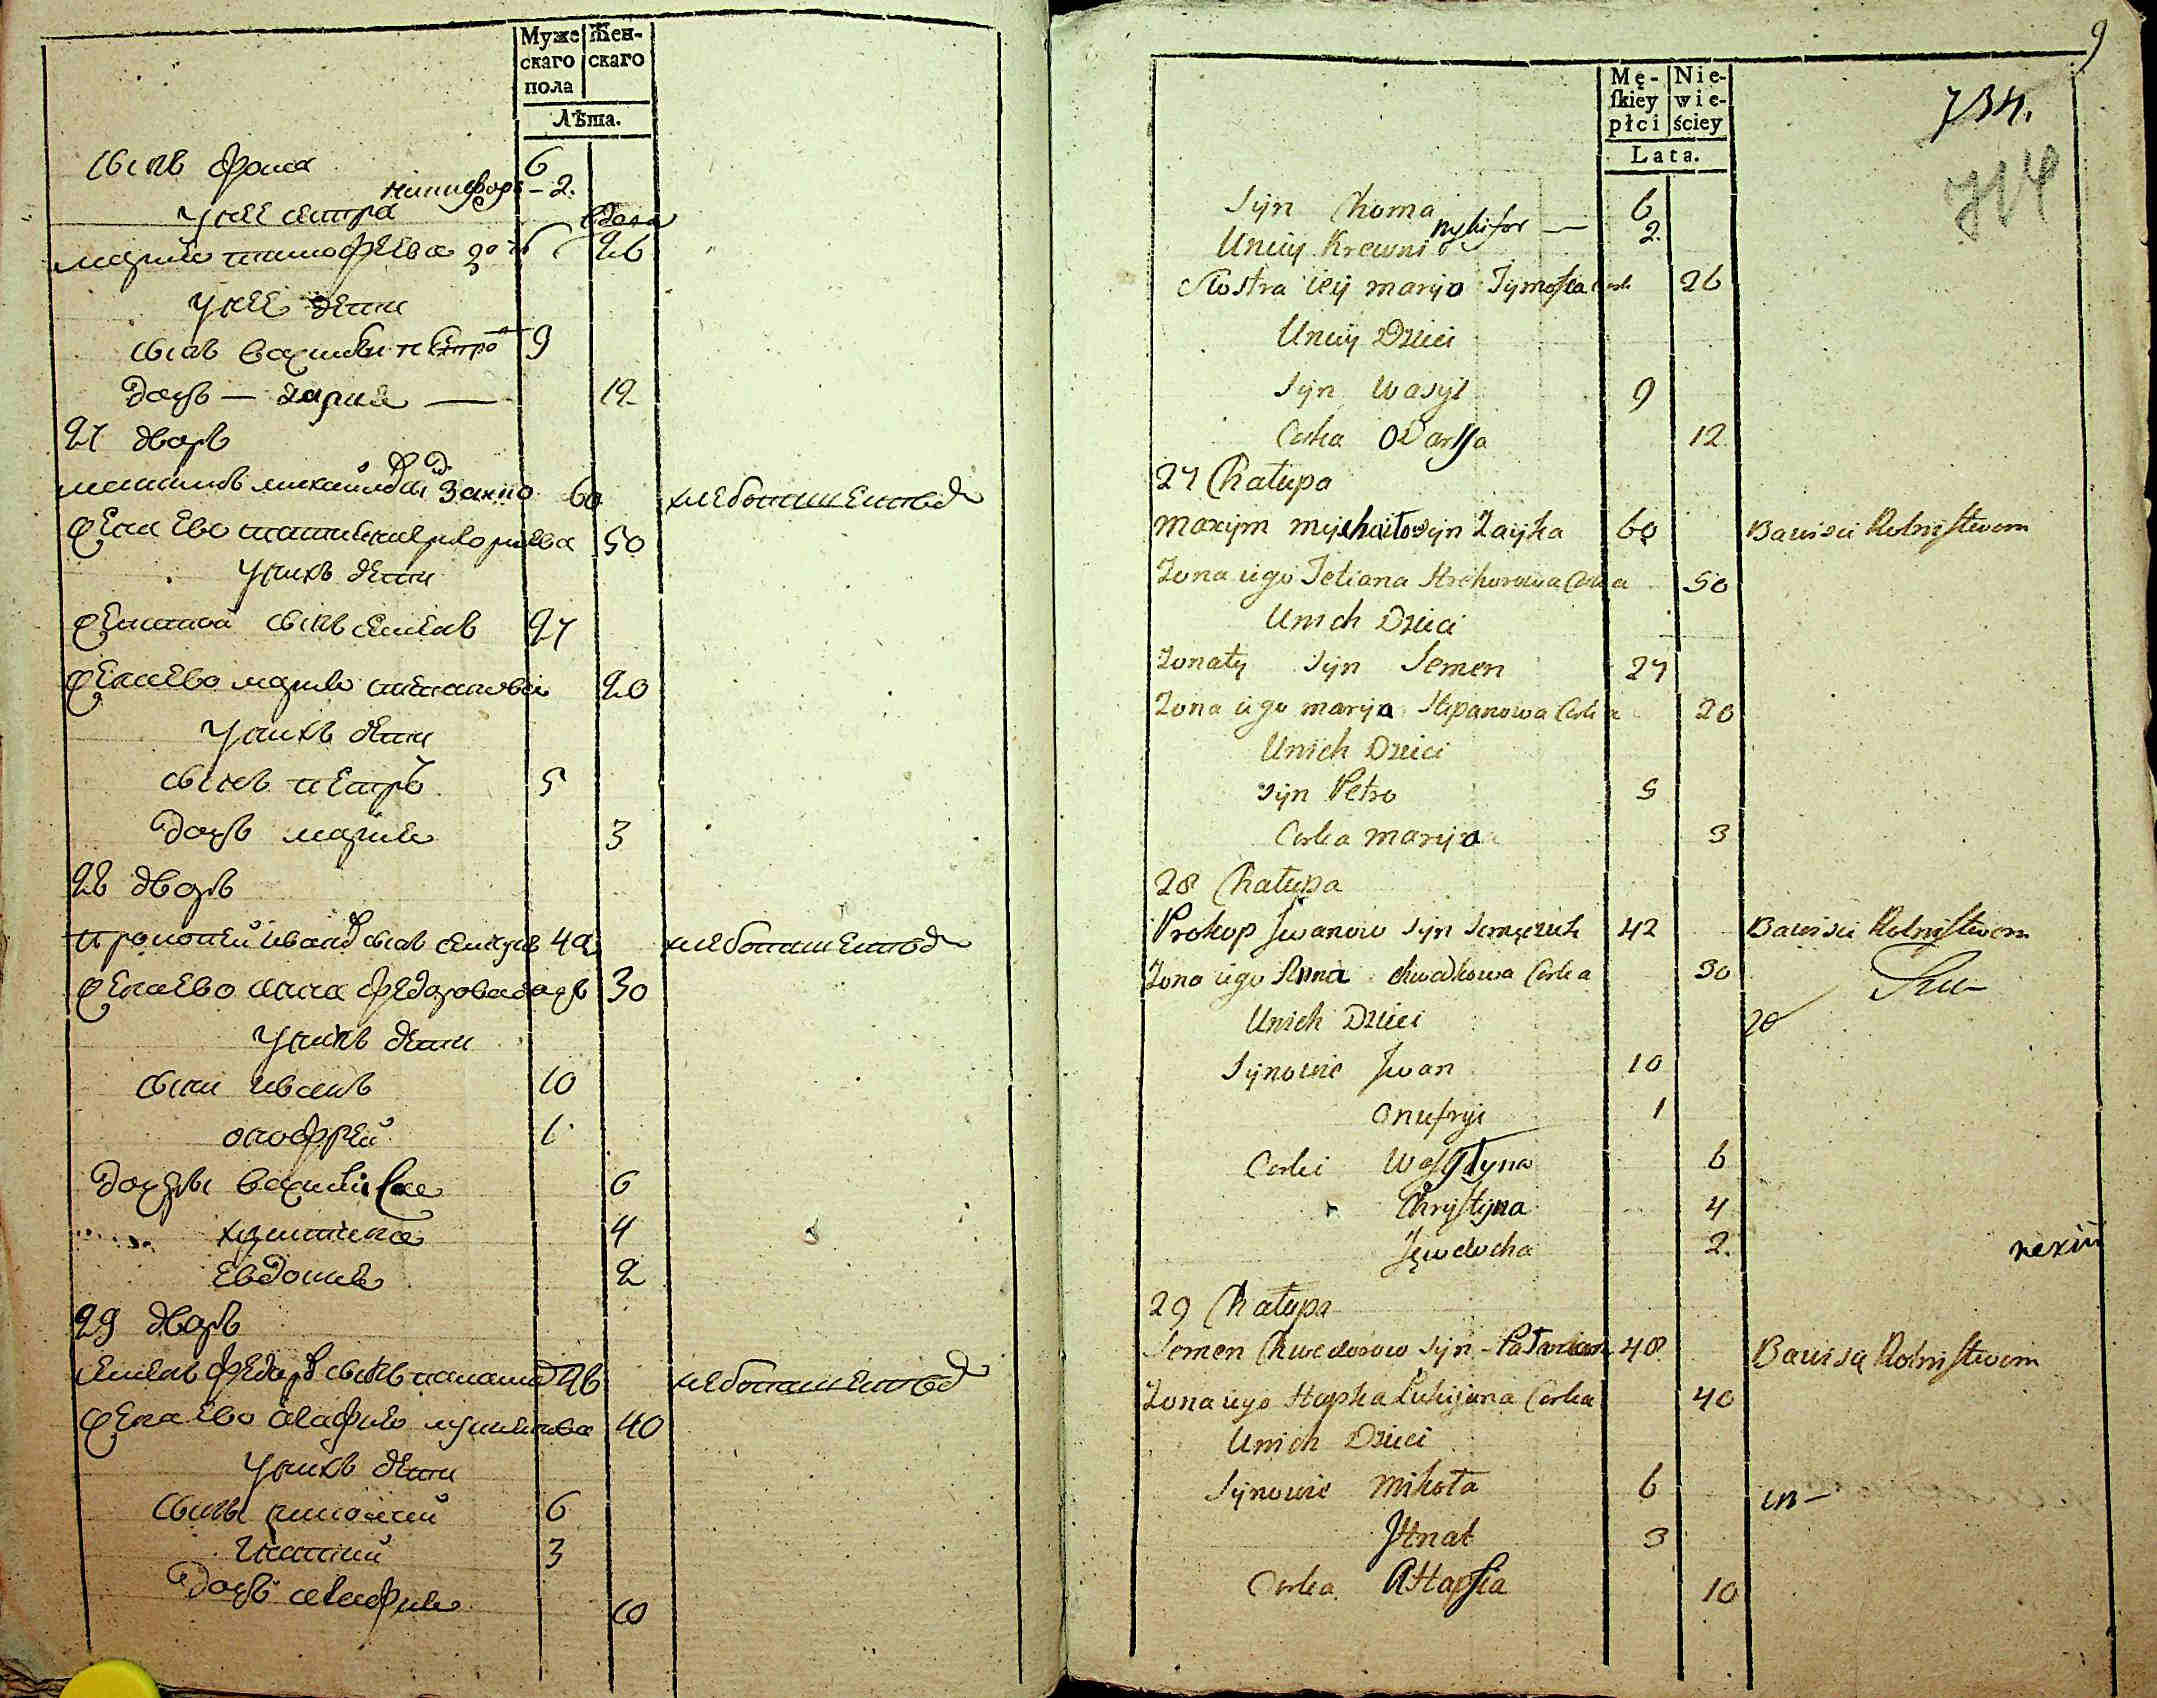 Муже Жен-
скаго скаго
пола
Лѣта.
сынъ фома 6
никифоръ – 2.
унее сестра вдова
марья тимофеева 26
унее дети
сынъ василеи 9
дочь — дария — 12
27 дворъ
максимъ михайловъ заико 60 хлебопашеством
жена ево татиана григориева 50
унихъ дети
женатой сынъ семенъ 27
жена ево мария степанова 20
унихъ дети
сынъ петръ 5
дочь мария 3
28 дворъ
прокопей иванов сынъ 42 хлебопашеством
жена ево анна федорова дочь 30
унихъ дети
сыны иванъ 10
онофрей 1
дочери василиса 6
христина 4
евдокия 2
29 дворъ
семенъ федоров сынъ 48 хлебопашеством
жена ево агафия 40
унихъ дети
сыны николай 6
игнатий 3
дочь агафия 10
9
Mę- Nie-
ſkiey wie-
płci ściey
Lata.
734.
714
Syn Choma 6
nykifor — 2.
Uniiy Krewni
Siostra ieij maryja Tymofia Cork 26
Uniiy Dzieci
Syn Wasyl 9
Corka Odarka 12
27 Chałupa
Maxym mychaiłow Syn Zayka 60 Bawi sie Rolnistwem
Zona iego Tetiana Hrehorowa Corka 50
Unich Dzieci
Zonaty Syn Semen 27
Zona iego maryja Stepanowa Corka 20
Unich Dzieci
Syn Petro 5
Corka maryja 3
28 Chałupa
Prokop Jwanow Syn Semczuk 42 Bawi sie Rolnistwem
Zona iego Anna Chwedkowa Corka 30
Unich Dzieci 20
Synowie Jwan 10
Onufryi 1
Corki Wasylyna 6
Chrystyna 4
Jewdocha 2.
29 Chałupa
Semen Chwedorow Syn 48 Bawi się Rolnistwem
Zona iego Hapka Lukijana Corka 40
Unich Dzieci
Synowie Mikoła 6
Jhnat 3
Corka Ahapka 10